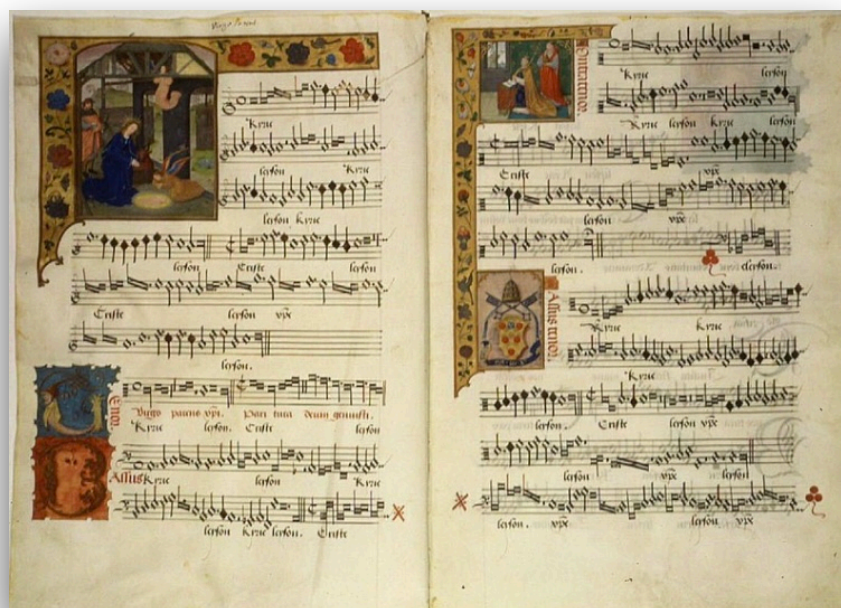 Kyrie
leyson Kyrie
leyson Kyrie
leyson Criste leyson
Criste leyson xpe
leyson.
Tenor
Virgo parens xpi. Pari tura deum genuisti.
Kyrie leyson. Criste leyson
Bassus Kyrie leyson Kyrie
leyson Kyrie leyson. Criste
Contratenor.
Kyrie leyson
Kyrie leyson kyrie leyson
Criste xpe
leyson xpe
leyson. leyson
Bassus tenor.
Kyrie Kyrie
Kyrie
leyson. Criste leyson xpe
leyson xpe leyson
leyson. xpe leyson xpe